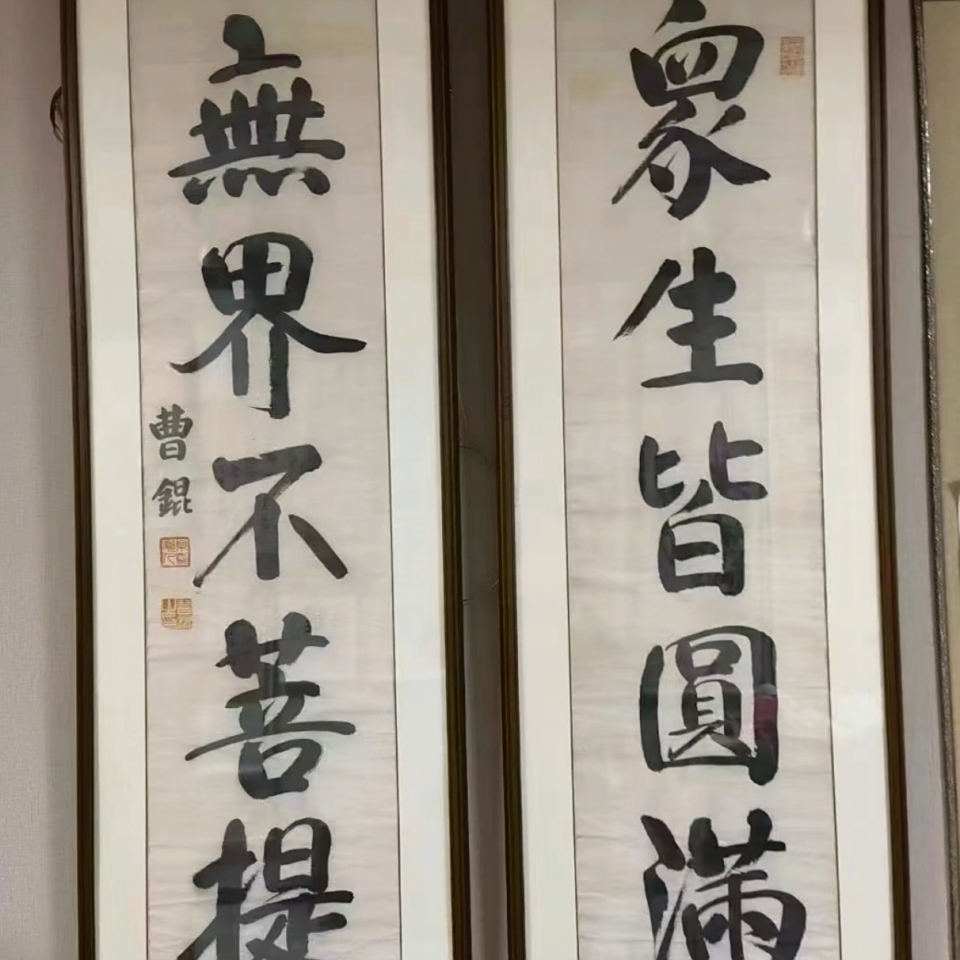 眾生皆圓滿
無界不菩提
曹錕